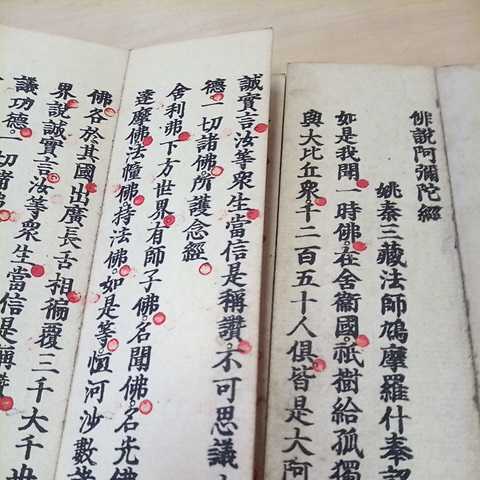 佛說阿彌陀經
姚秦三藏法師鳩摩羅什奉詔
如是我聞一時佛在舍衞國祇樹給孤獨
與大比丘衆千二百五十人俱皆是大阿
誠實言汝等衆生當信是稱讚不可思議
德一切諸佛所護念經
舍利弗下方世界有師子佛名聞佛名光佛
達摩佛法幢佛持法佛如是等恆河沙數諸
佛各於其國出廣長舌相徧覆三千大千世
界說誠實言汝等衆生當信是稱讚
議功德一切諸佛